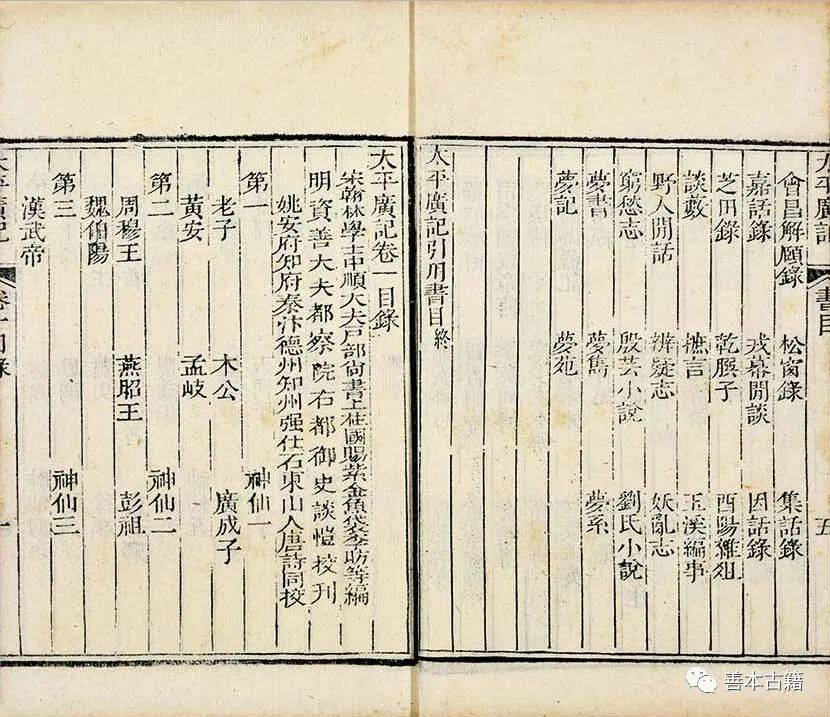 太平廣記 書目 五
會昌解頤錄 松窗錄 集話錄
嘉話錄 戎幕閒談 因話錄
芝田錄 乾𦠆子 酉陽雜俎
談藪 摭言 玉溪編事
野人閒話 辨疑志 妖亂志
窮愁志 殷芸小說 劉氏小說
夢書 夢雋 夢系
夢記 夢苑
太平廣記引用書目終
太平廣記卷一目錄
宋翰林學士中順大夫戶部尚書上柱國賜紫金魚袋李昉等編
明資善大夫都察院右都御史談愷校刊
姚安府知府秦汴德州知州强仕石東山人唐詩同校
第一 神仙一
老子 木公 廣成子
黃安 孟岐
第二 神仙二
周穆王 燕昭王 彭祖
魏伯陽
第三 神仙三
漢武帝
太平廣記 卷一目錄 一
善本古籍